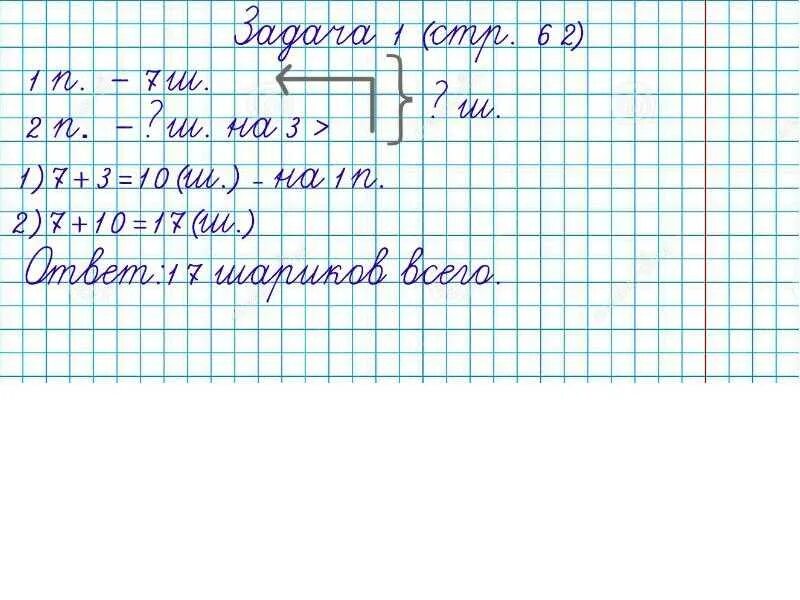 Задача 1 (стр. 62)
1 п. - 7 ш.
2 п. - ? ш. на 3 >
? ш.
1) 7 + 3 = 10 (ш.) - на 1 п.
2) 7 + 10 = 17 (ш.)
Ответ: 17 шариков всего.